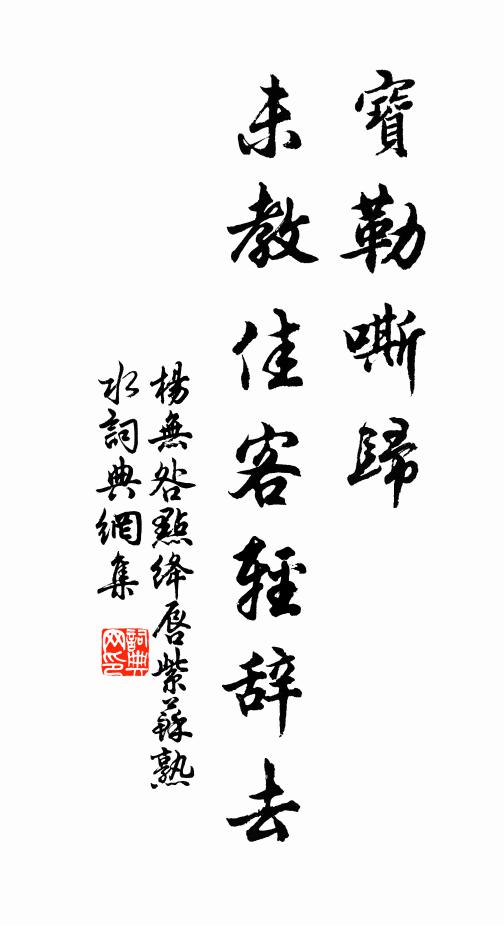 寶勒嘶歸
未教佳客輕辞去
楊無咎點絳唇紫蘇熟
水詞典網集
詞典网印